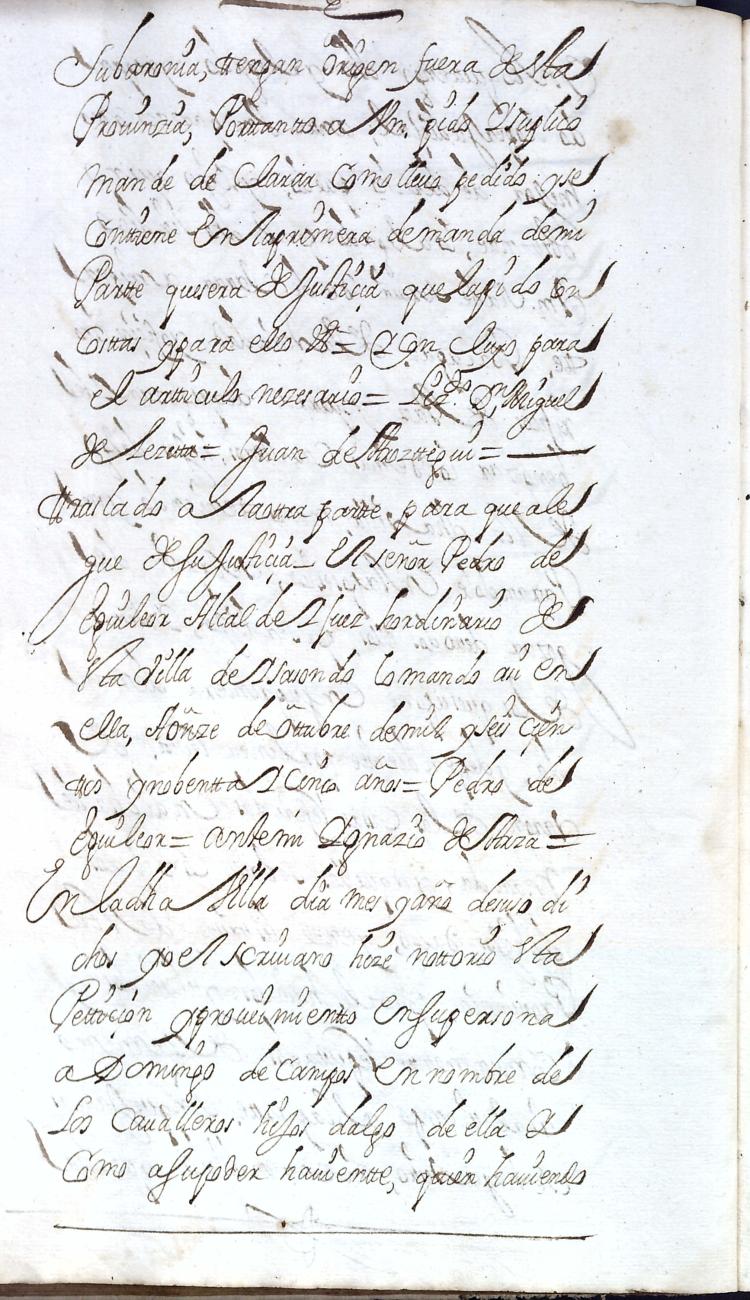 Subaronia, ttengan origen fuera de esta
Prouinzia, Porttantto a Vm. pido y suplico
mande declarar como lleuo pedido y se
contiene En la primera demanda de mi
Partte que sera de justicia que la pido con
costtas y para ello &ª = y con cluyo para
el artticulo nezesario = Lizdo. Dn. Miguel
de Lezetta = Juan de Arozttegui =
ttraslado a la otra partte para que ale
gue de su justicia El señor Pedro de
Eguileor Alcalde y juez hordinario de
esta Villa de Ysasondo lo mando assi en
ella, A onze de Ottubre de mil y seis cien
ttos y nobentta y cinco años = Pedro de
Eguileor = antemi Ygnazio de Ybarza =
En la dha Villa dia mes y año de suso di
chos yo el scriuano hize nottorio esta
Petticion y proueimientto en su persona
a Domingo de Campos en nombre de
Los Caualleros hijos dalgo de ella y
Como a su poder hauientte, quien hauiendo